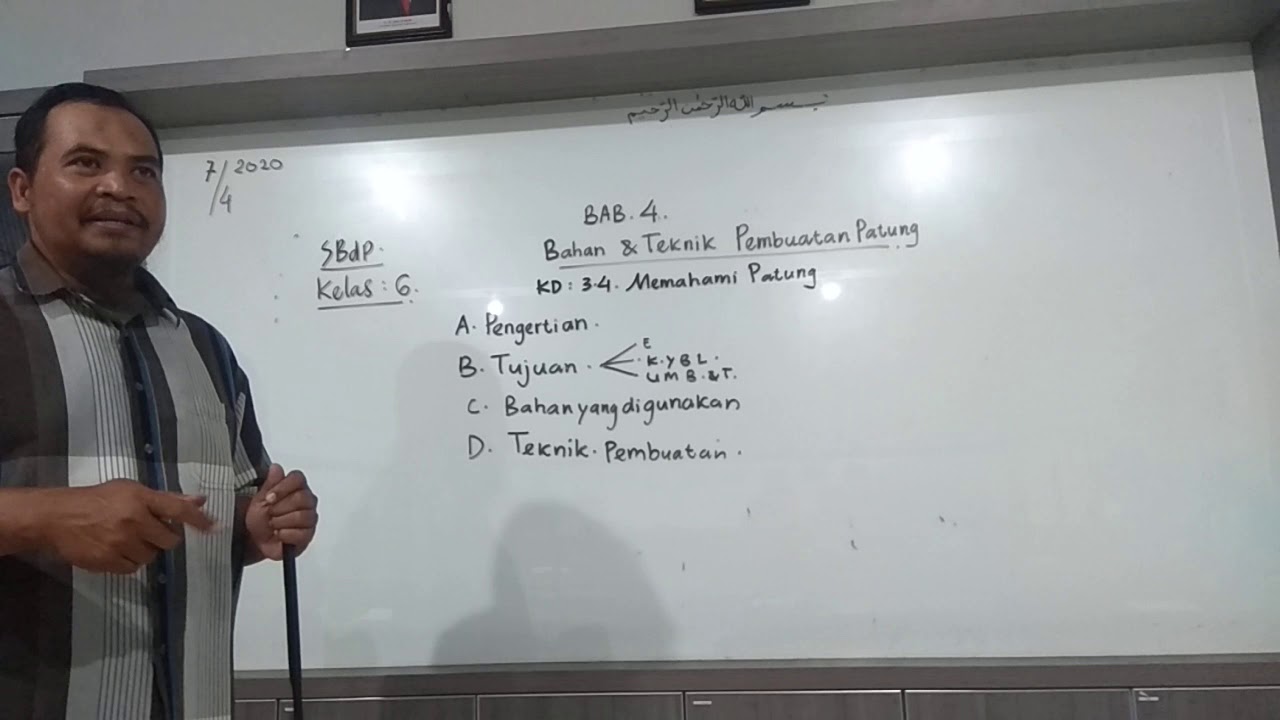 بسم الله الرّحمن الرّحيم
7/4 2020
BAB. 4.
SBdP.
Bahan & Teknik Pembuatan Patung
Kelas : 6.
KD : 3.4. Memahami Patung
A. Pengertian.
B. Tujuan.
E
K. Y B L.
U M B. & T.
C. Bahan yang digunakan
D. Teknik. Pembuatan.